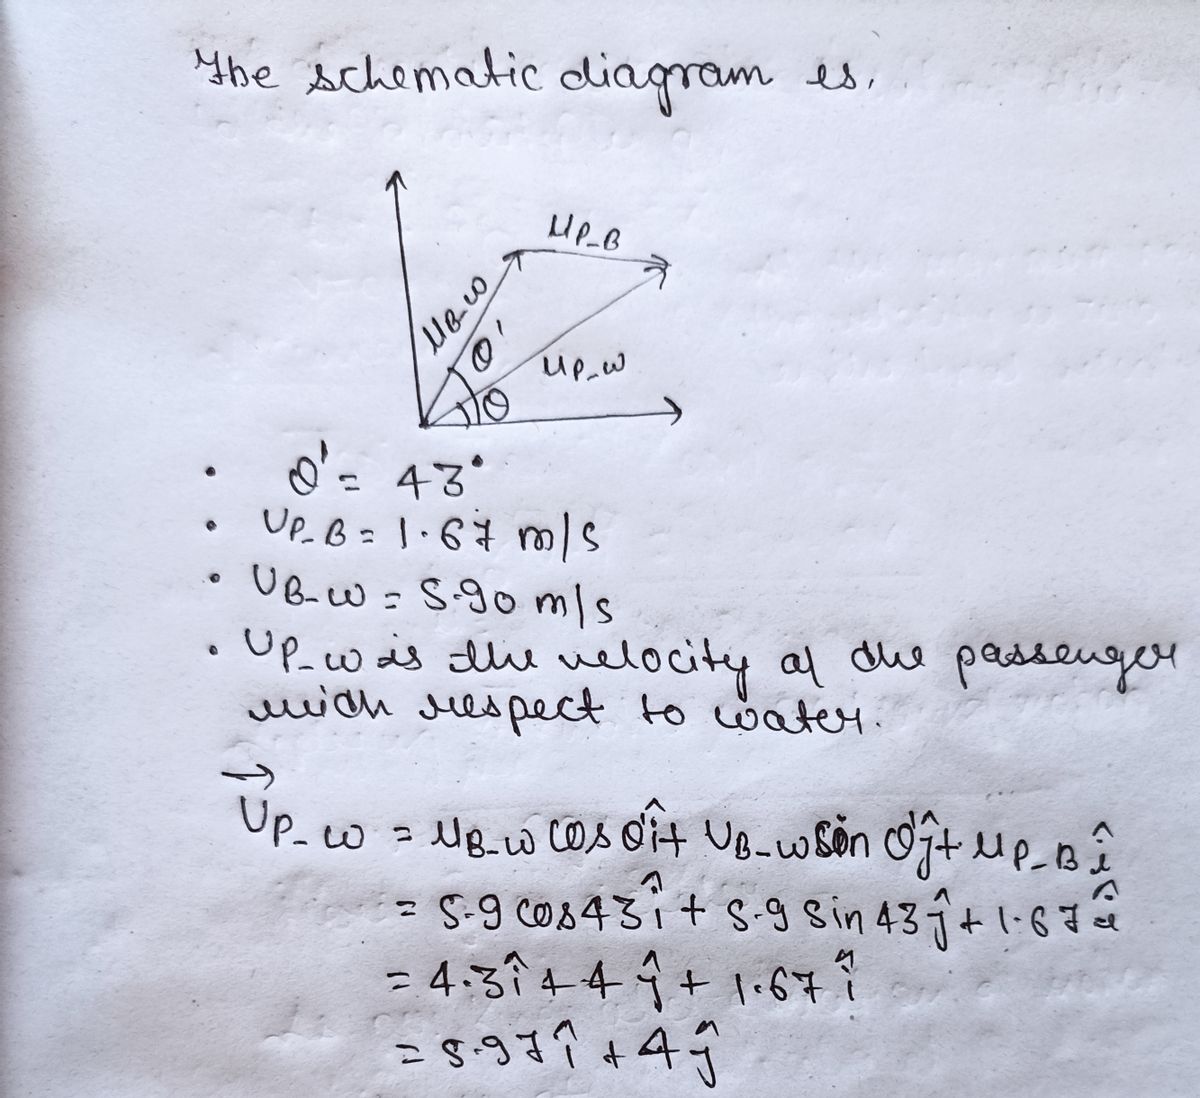 The schematic diagram is,
UP_B
UB_W
θ'
UP_W
θ
• θ' = 43°
• UP_B = 1.67 m/s
• UB_W = 5.90 m/s
• UP_W is the velocity of the passenger
with respect to water.
U⃗P_W = UB_W cos θ' î + UB_W sin θ' ĵ + UP_B î
= 5.9 cos 43 î + 5.9 sin 43 ĵ + 1.67 î
= 4.3 î + 4 ĵ + 1.67 î
= 5.97 î + 4 ĵ